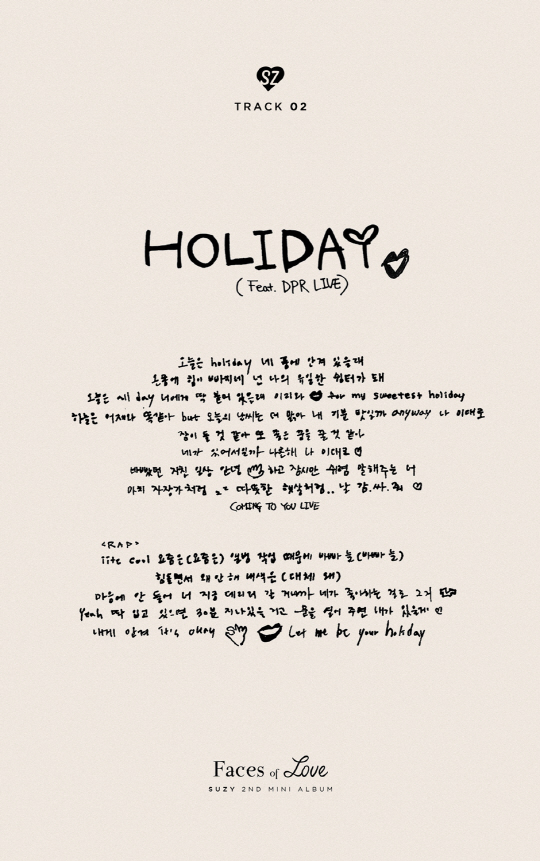 SZ
TRACK 02
HOLIDAY
(Feat. DPR LIVE)
오늘은 holiday 네 품에 안겨 있을래
온몸에 힘이 빠지네 넌 나의 유일한 쉼터가 돼
오늘은 all day 너에게 딱 붙어 있을래 이리와 for my sweetest holiday
하늘은 어제와 똑같아 but 오늘의 날씨는 더 맑아 내 기분 탓일까 anyway 나 이대로
잠이 들 것 같아 또 좋은 꿈을 꿀 것 같아
네가 있어서일까 나른해 나 이대로
바빴던 지친 일상 안녕 하고 잠시만 쉬렴 말해주는 너
마치 자장가처럼 따뜻한 햇살처럼.. 날 감.싸.줘
COMING TO YOU LIVE
<RAP>
iite cool 요즘은(요즘은) 앨범 작업 때문에 바빠 늘(바빠 늘)
힘들면서 왜 안 해 내색은 (대체 왜)
마음에 안 들어 너 지금 데리러 갈 거니까 네가 좋아하는 걸로 그거
Yeah 딱 입고 있으면 30분 지나있을 거고 문을 열어 주면 내가 있을게
내게 안겨 it's okay Let me be your holiday
Faces of Love
SUZY 2ND MINI ALBUM